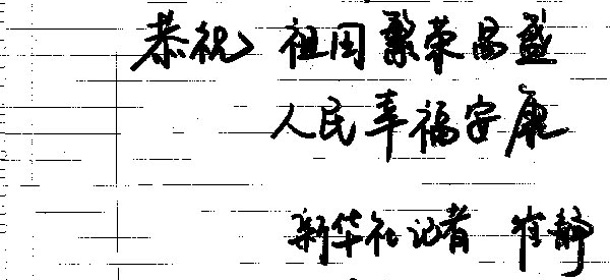 恭祝 祖国繁荣昌盛
人民幸福安康
新华社记者 崔静